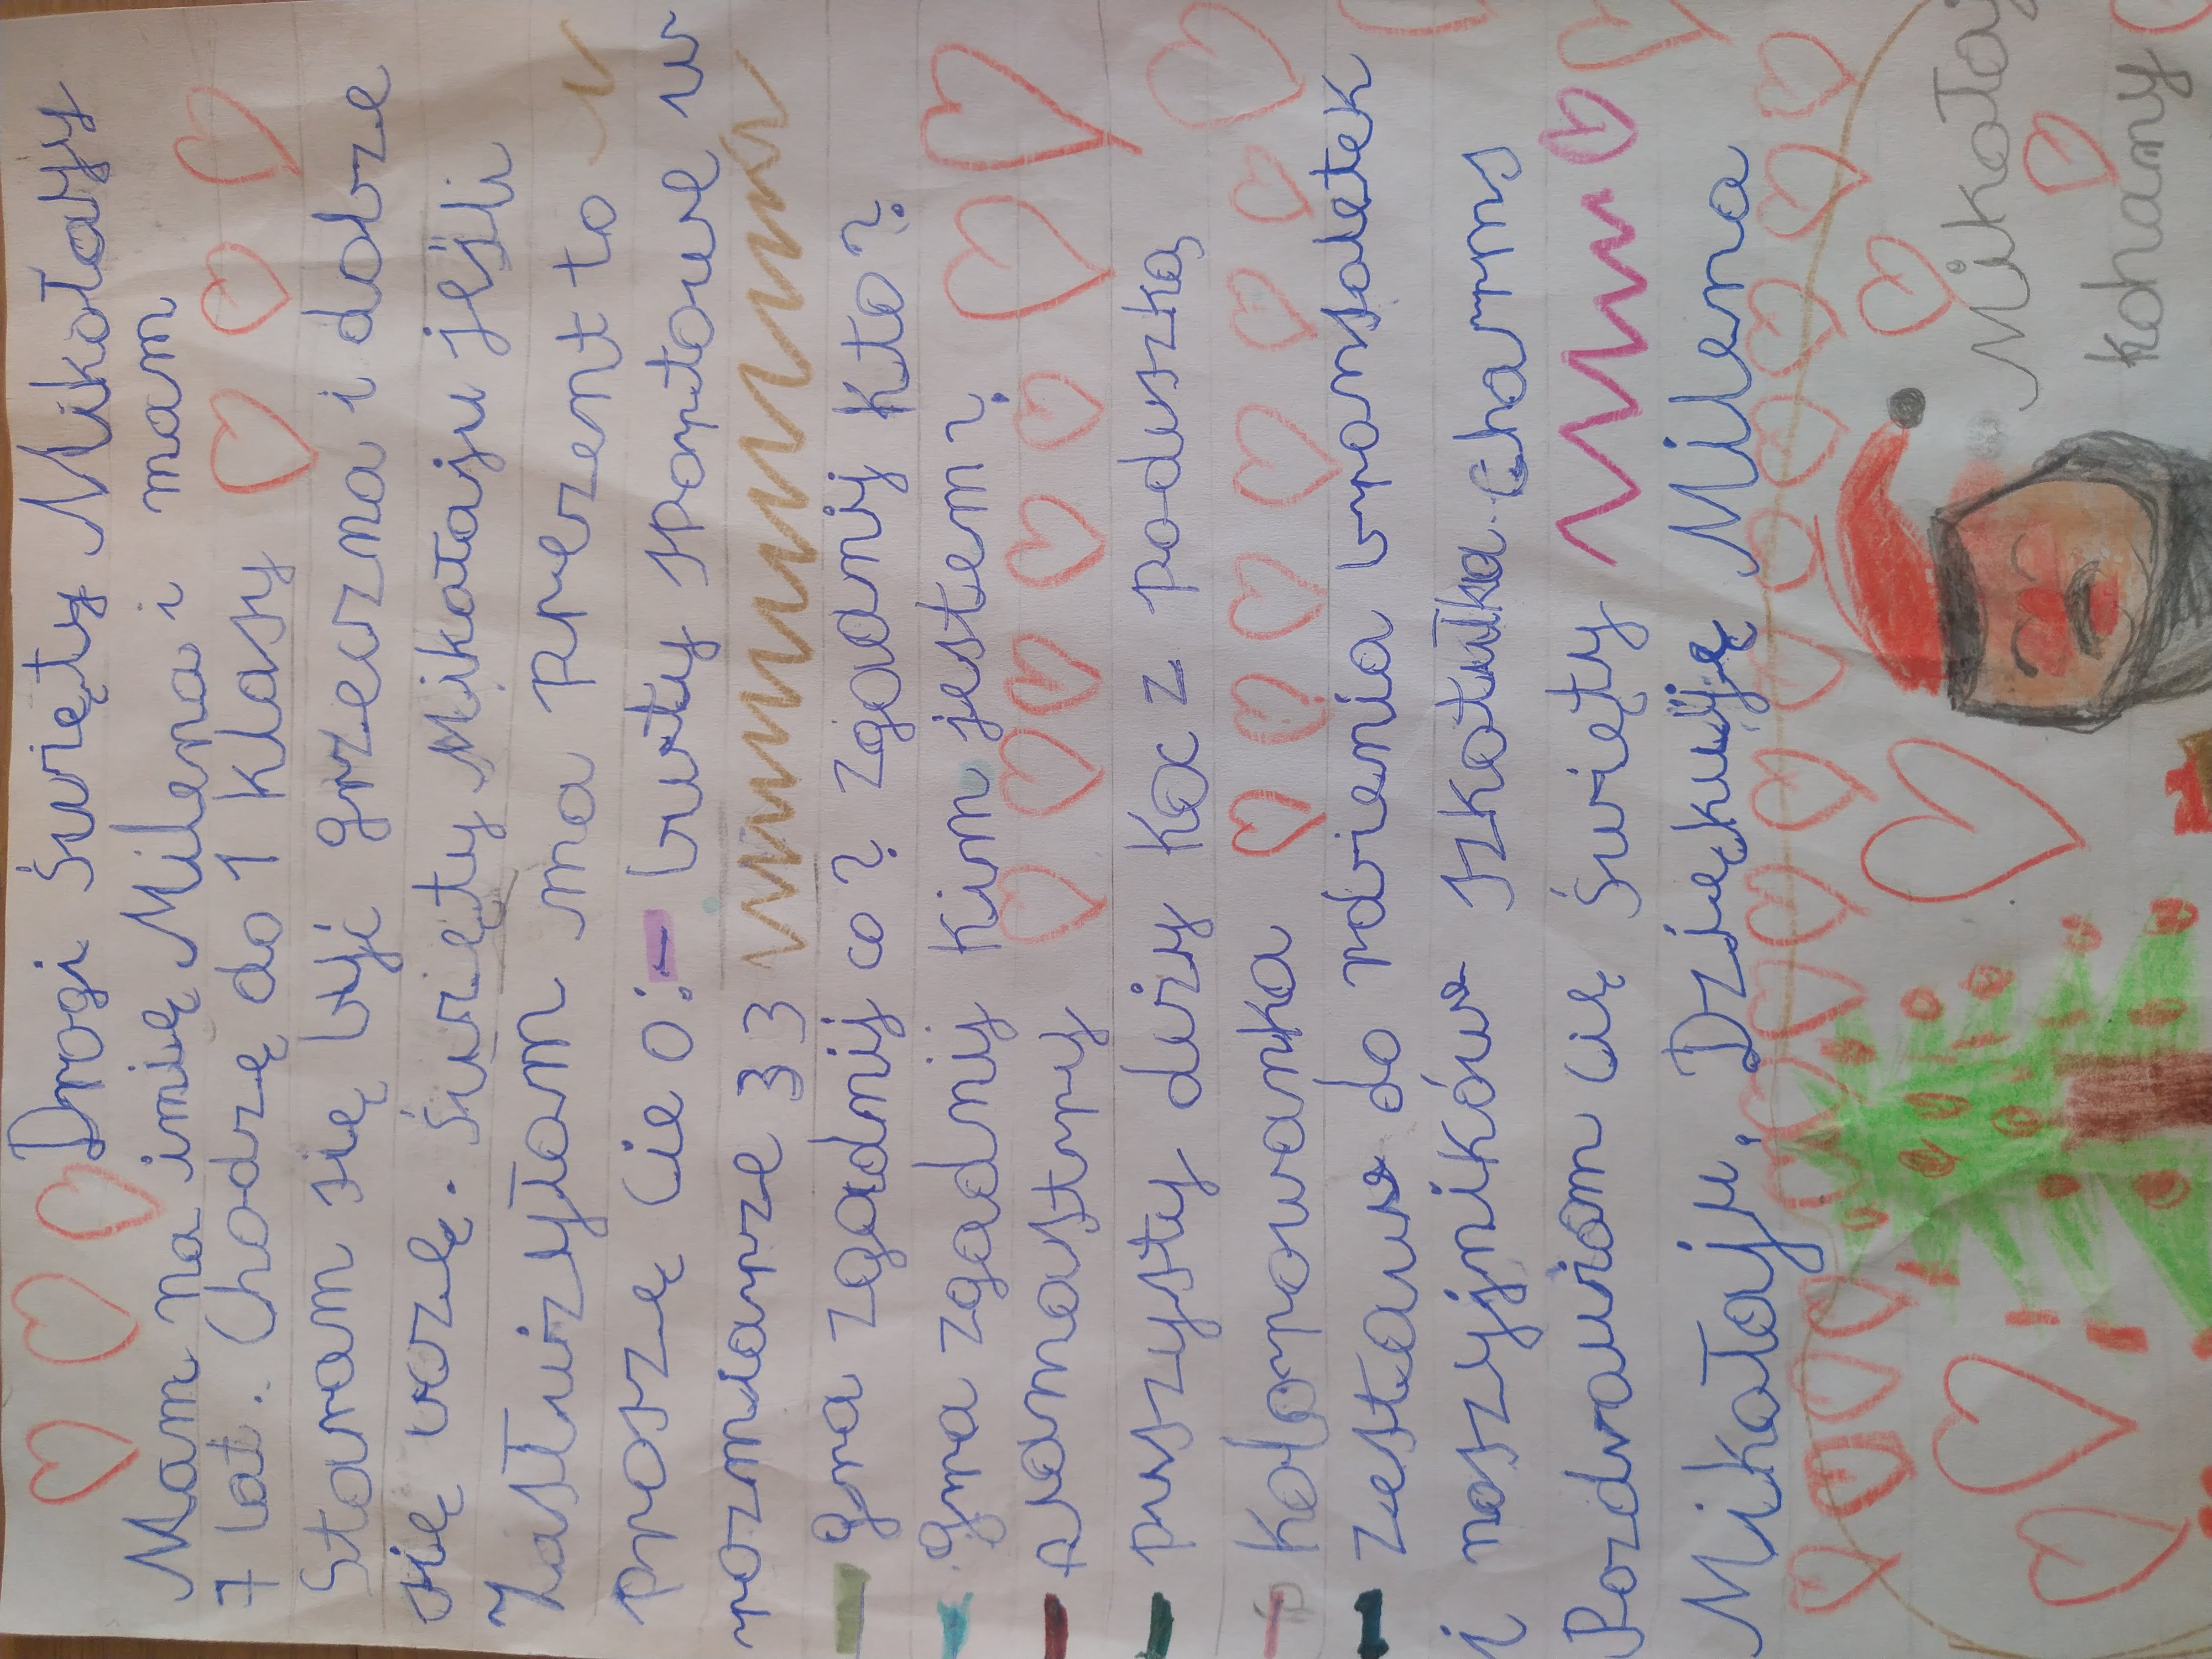 Drogi Święty Mikołajy
Mam na imię Milena i mam
7 lat. Chodzę do 1 klasy
Staram się być grzeczna i dobrze
się uczę. Święty Mikołaju jeśli
Zasłużyłam na prezent to
proszę Cie o: - buty sportowe w
rozmiarze 33
Gra zgadnij co? zgadnij kto?
Gra zgadnij kim jestem?
flamastry
puszysty duży koc z poduszką
Kolorowanka
zestaw do robienia bransoletek
i naszyjników szkatułka charms
Pozdrawiam cię Święty
Mikołaju. Dziękuję Milena
Mikołaj
kohamy